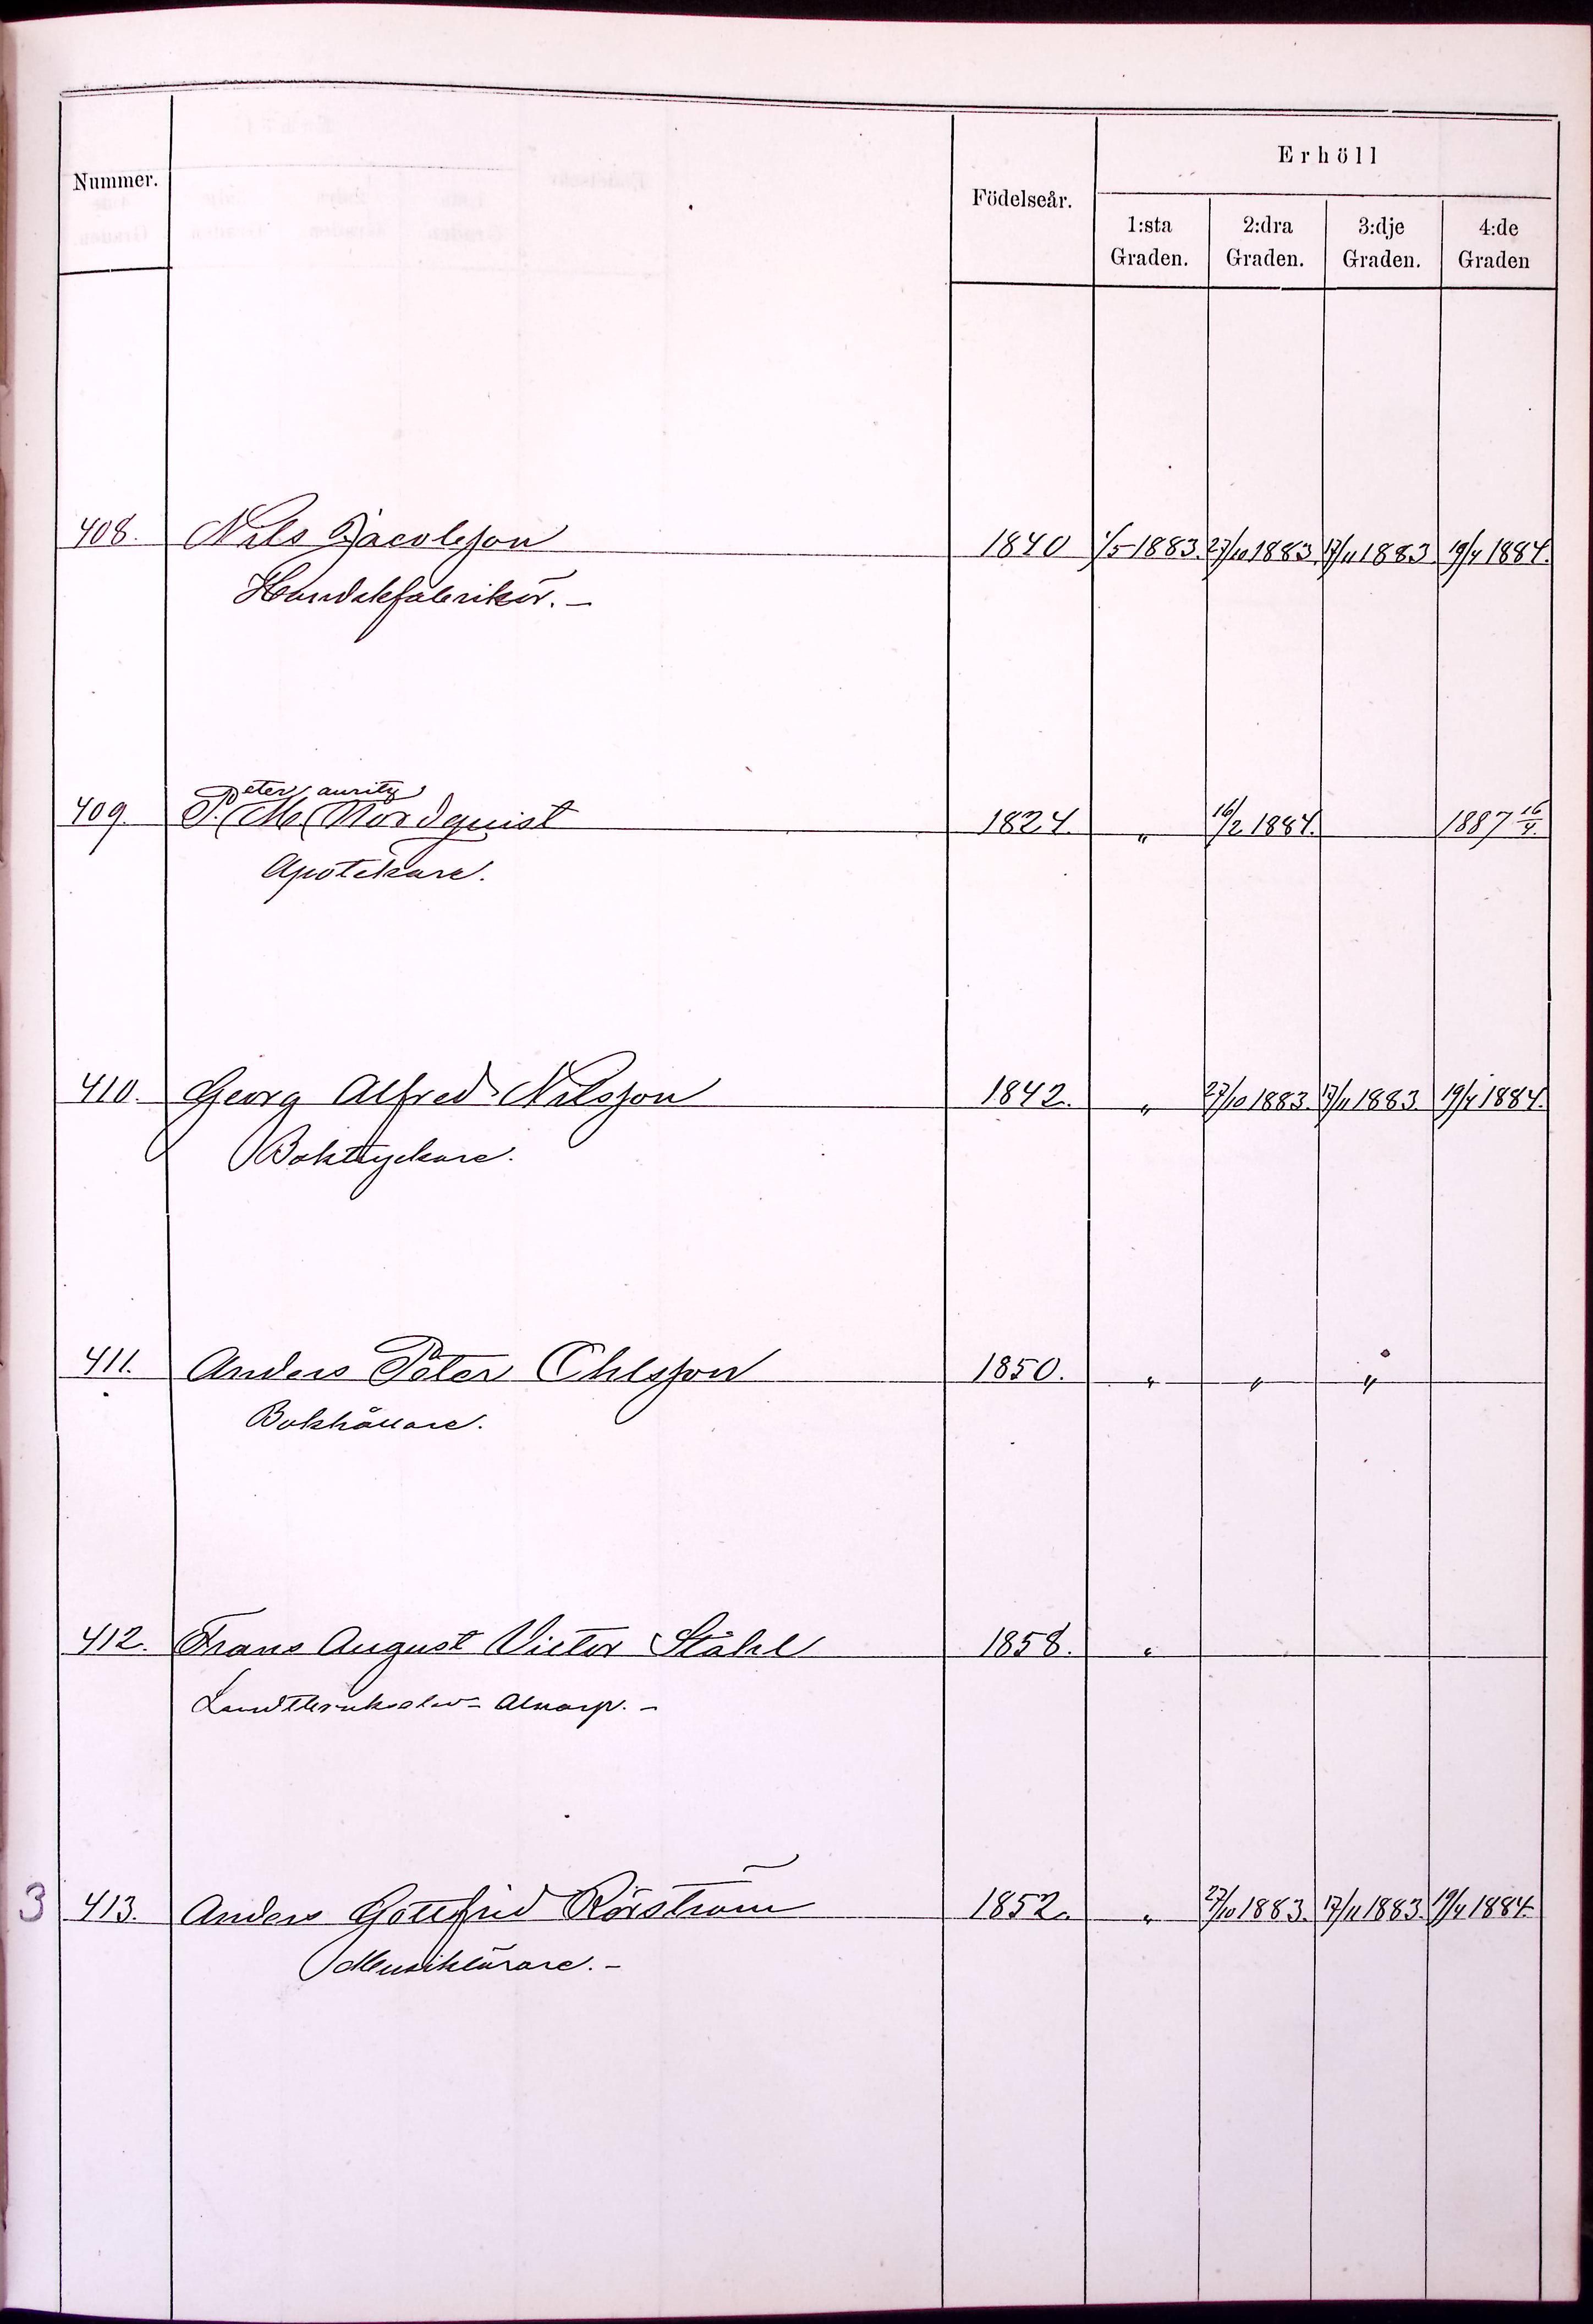 Nummer. Födelseår. Erhöll
1:sta Graden. 2:dra Graden. 3:dje Graden. 4:de Graden
408. Nils Jacobsson 1840 1/5 1883. 27/10 1883. 17/11 1883 19/4 1884.
Handskfabrikör. –
eter auritz
409. P. M. Nordquist 1824. " 16/2 1884. 1887 16/4.
Apotekare.
410. Georg Alfred Nilsson 1842. " 27/10 1883. 17/11 1883. 19/4 1884.
Boktryckare.
411. Anders Peter Ohlsson 1850. " " "
Bokhållare.
412. Frans August Victor Ståhl 1858. "
Landtbrukselev – Alnarp. –
3 413. Anders Gottfrid Rörström 1852. " 27/10 1883. 17/11 1883. 19/4 1884.
Musiklärare. –